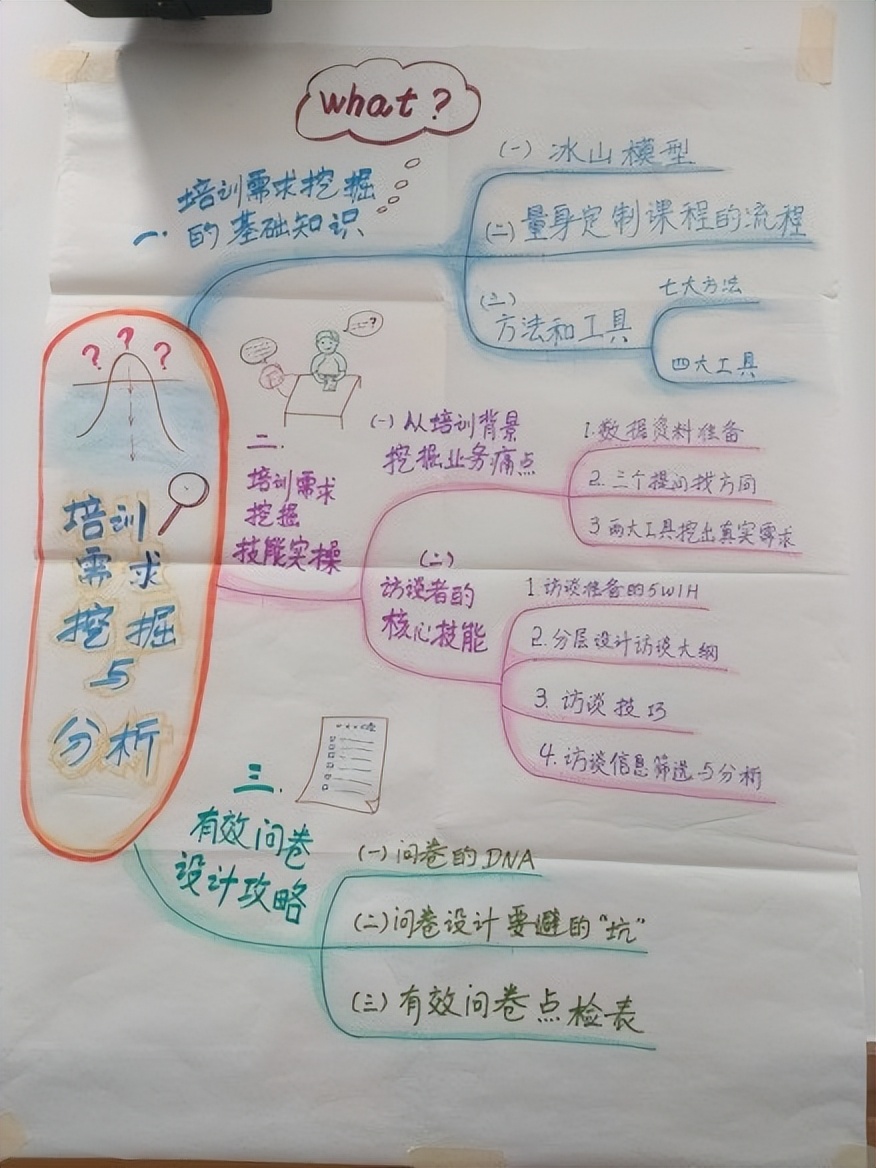 what?
培训需求挖掘
一. 的基础知识
(一) 冰山模型
(二) 量身定制课程的流程
(三)
方法和工具
七大方法
四大工具
? ? ?
培训
需求
挖掘
与
分析
...?
二.
培训需求
挖掘
技能实操
(一) 从培训背景
挖掘业务痛点
1.数据资料准备
2.三个提问找方向
3 两大工具挖出真实需求
(二)
访谈者的
核心技能
1.访谈准备的5W1H
2.分层设计访谈大纲
3.访谈技巧
4.访谈信息筛选与分析
三.
有效问卷
设计攻略
(一)问卷的DNA
(二)问卷设计要避的"坑"
(三)有效问卷点检表